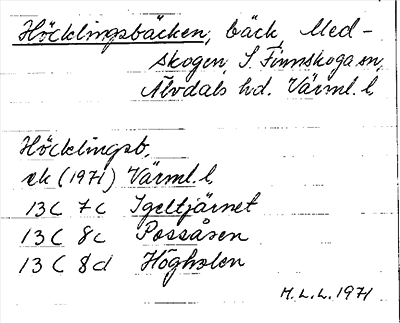 Höcklingsbäcken, bäck, Med-
skogen, S. Finnskoga sn,
Älvdals hd. Värml. l.
Höcklingsb.
ek (1971) Värml. l.
13C 7c Igeltjärnet
13C 8c Possåsen
13C 8d Högholen
M.L.L. 1971